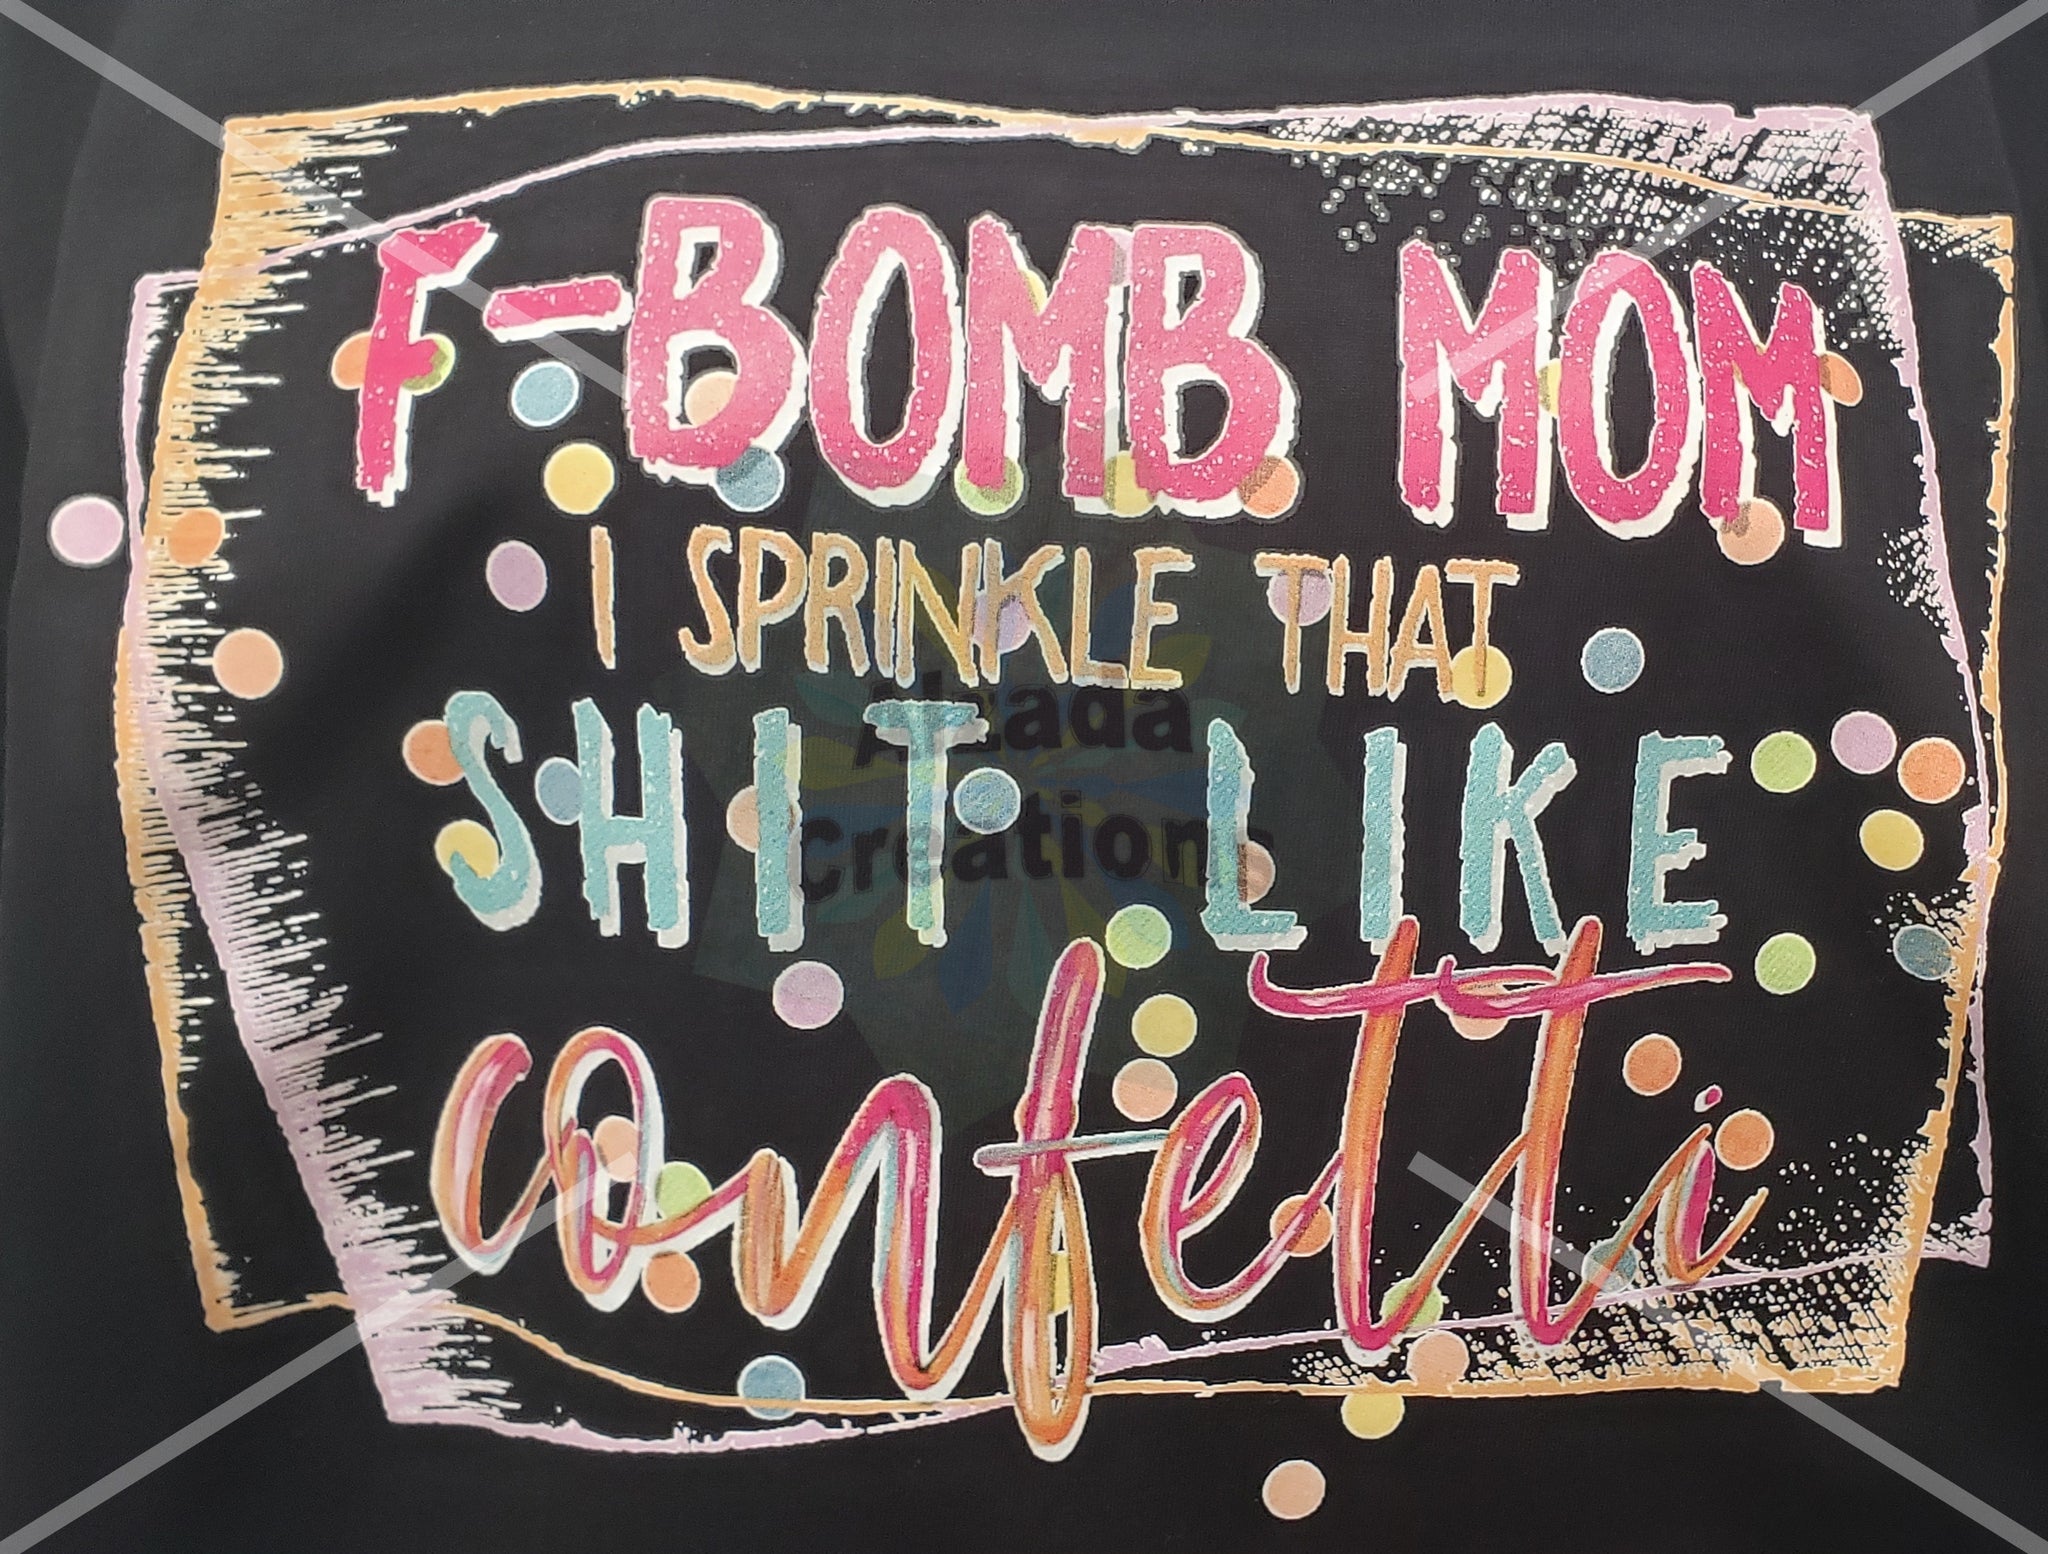 F-BOMB MOM
I SPRINKLE THAT
SHIT LIKE
confetti
Alzada
Creations